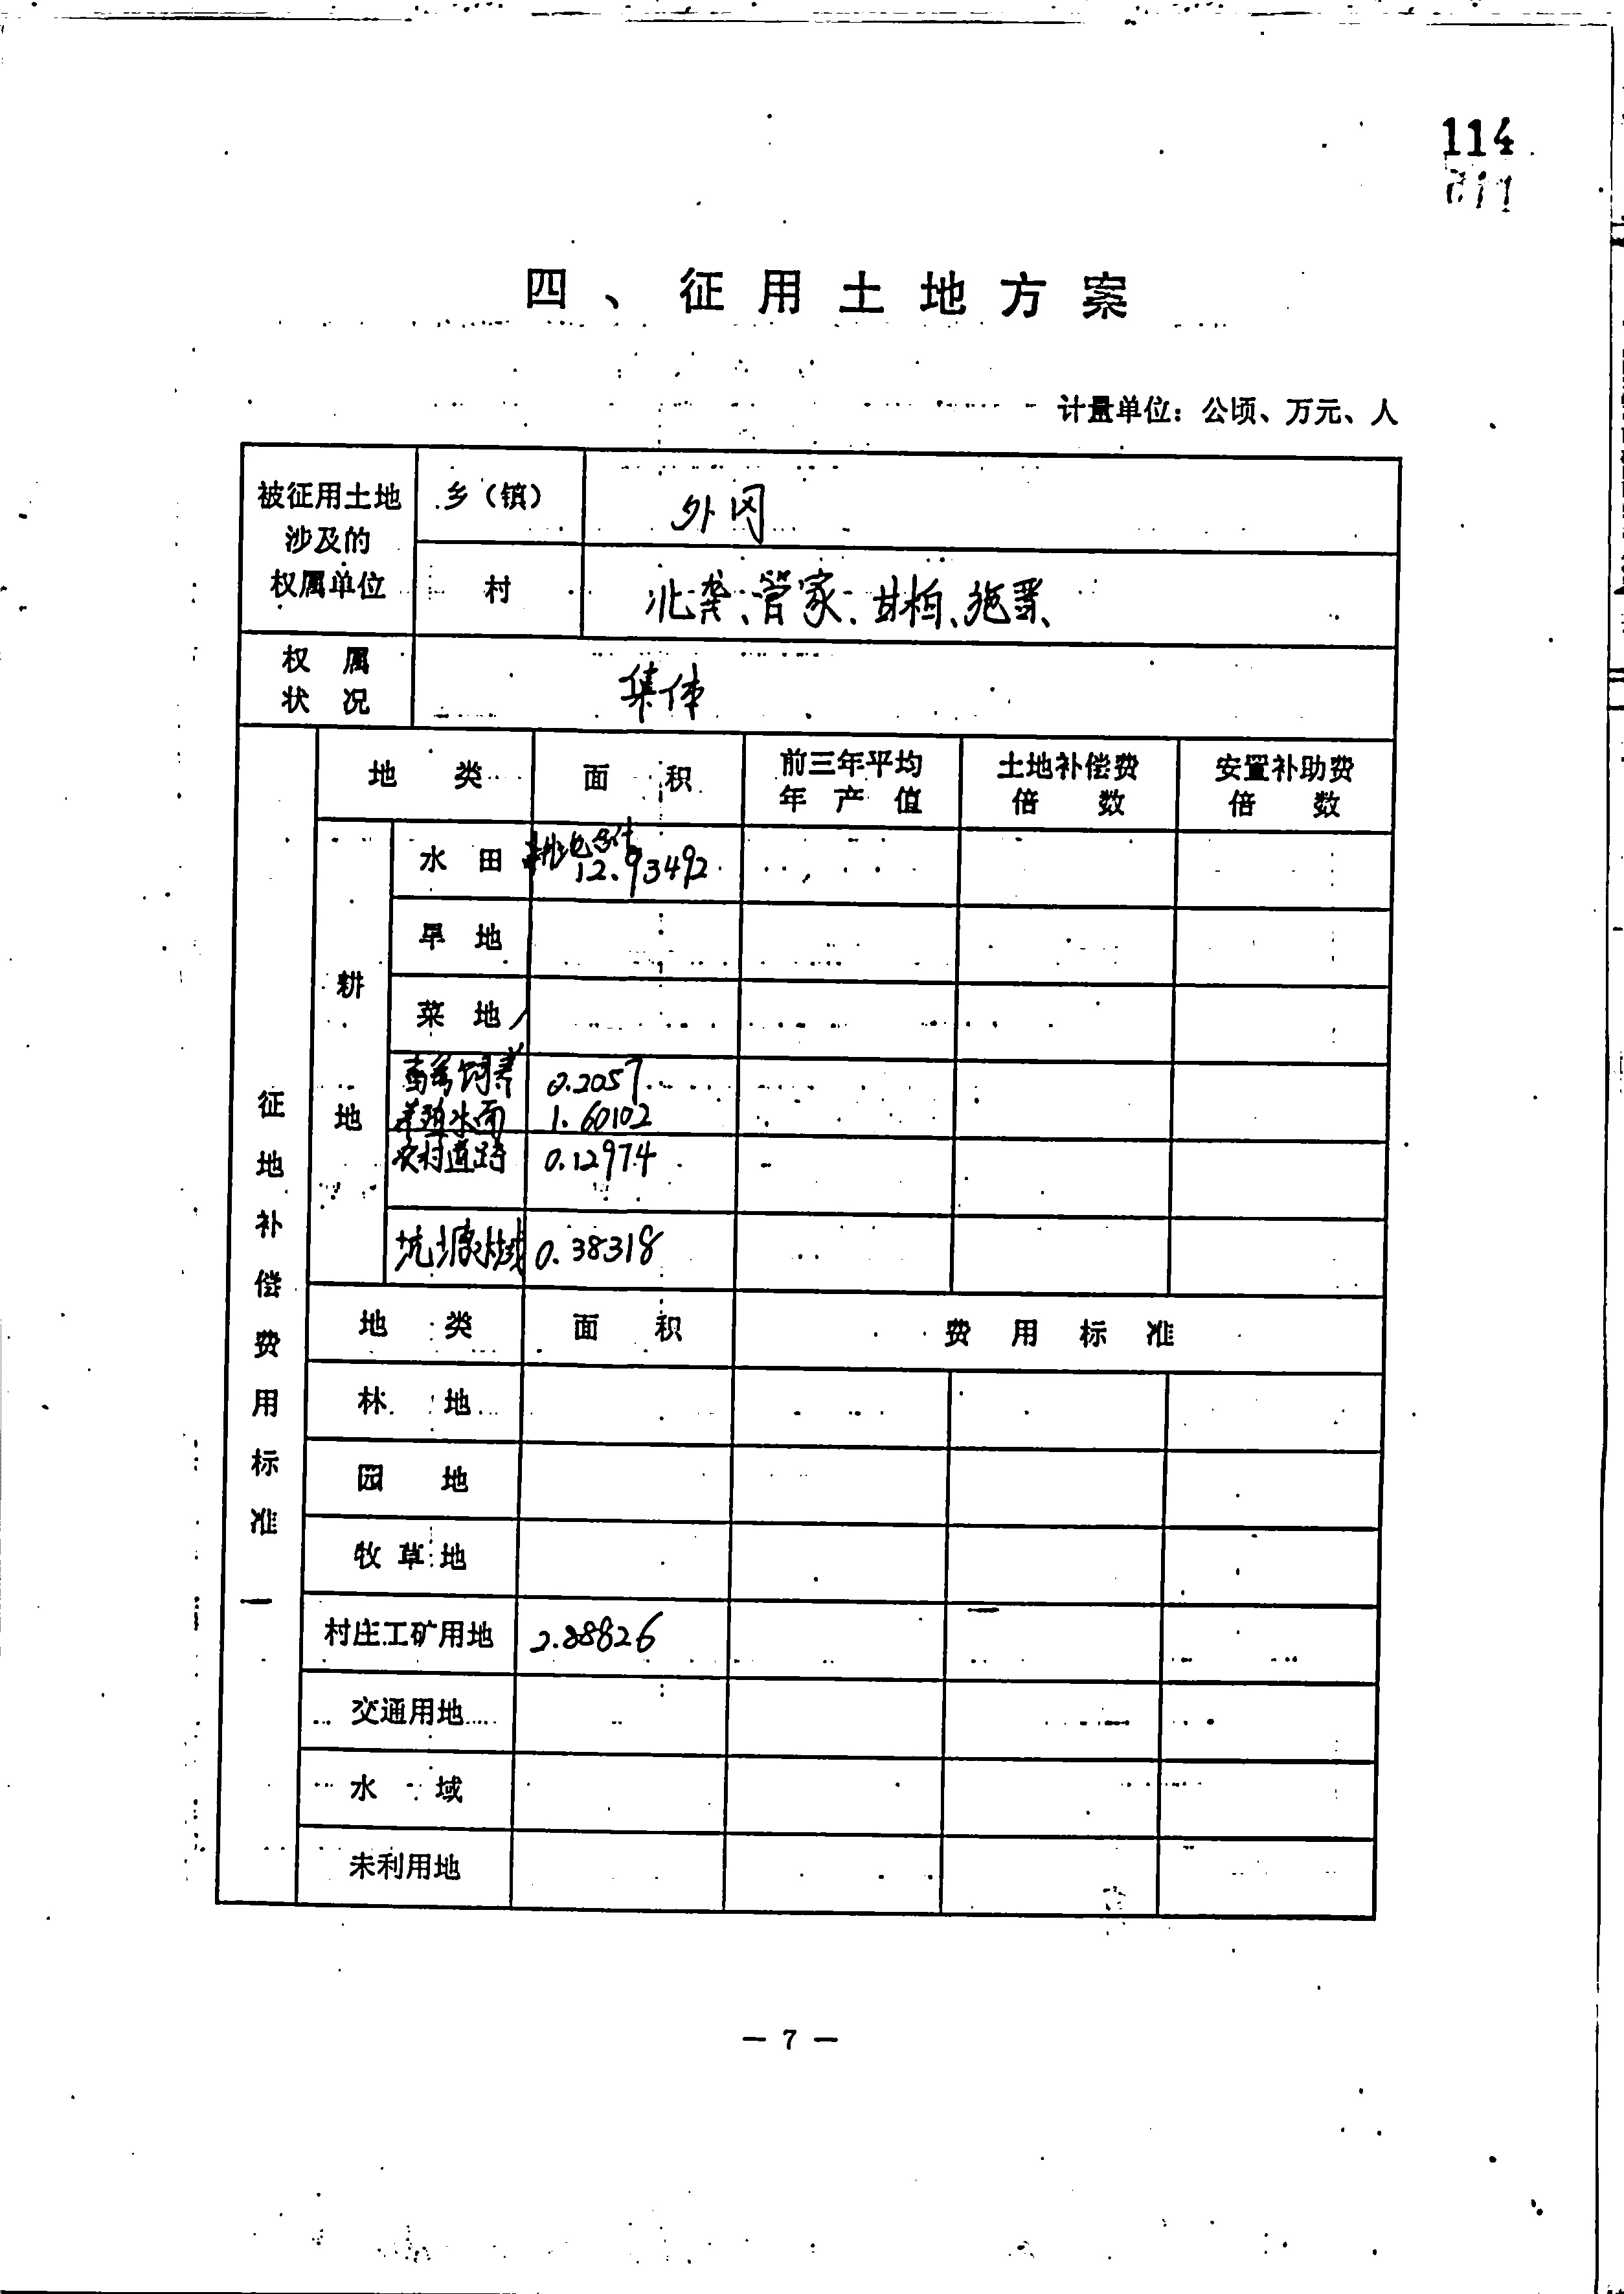 114
四、征用土地方案
计量单位：公顷、万元、人
被征用土地
涉及的
权属单位
乡（镇）
外冈
村
北龚、管家、甘柏、施晋、
权属
状况
集体
征地补偿费用标准
地类
面积
前三年平均
年产值
土地补偿费
倍数
安置补助费
倍数
耕地
水田
耕地合计
12.93492
旱地
菜地
畜禽饲养
0.2057
养殖水面
1.60102
农村道路
0.12974
坑塘水域
0.38318
地类
面积
费用标准
林地
园地
牧草地
村庄工矿用地
2.88826
交通用地
水域
未利用地
— 7 —